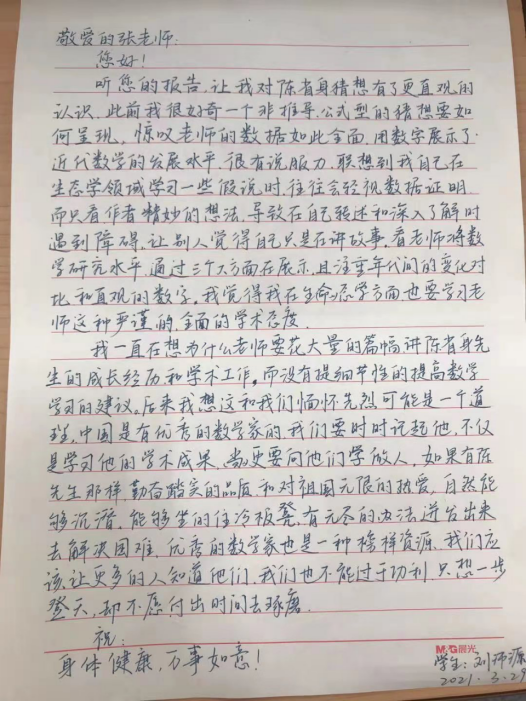 敬爱的张老师:
您好!
听您的报告,让我对陈省身猜想有了更直观的
认识.此前我很好奇一个非推导.公式型的猜想要如
何呈现,惊叹老师的数据如此全面,用数字展示了
近代数学的发展水平,很有说服力.联想到我自己在
生态学领域学习一些假说时,往往会轻视数据证明
而只看作者精妙的想法,导致在自己转述和深入了解时
遇到障碍,让别人觉得自己只是在讲故事.看老师将数
学研究水平,通过三个大方面在展示,且注重年代间的变化对
比和直观的数字,我觉得我在生命态学方面也要学习老
师这种严谨的,全面的学术态度.
我一直在想为什么老师要花大量的篇幅讲陈省身先
生的成长经历和学术工作,而没有提细节性的提高数学
学习的建议。后来我想这和我们缅怀先烈可能是一个道
理,中国是有优秀的数学家的,我们要时时记起他,不仅
是学习他的学术成果,更要向他们学做人,如果有陈
先生那样,勤奋踏实的品质和对祖国无限的热爱,自然能
够沉潜,能够坐的住冷板凳,有无尽的办法迸发出来
去解决困难.优秀的数学家也是一种榜样资源,我们应
该让更多的人知道他们,我们也不能过于功利,只想一步
登天,却不愿付出时间去琢磨.
祝:
身体健康,万事如意!
M&G晨光
学生:刘沛源
2021.3.29